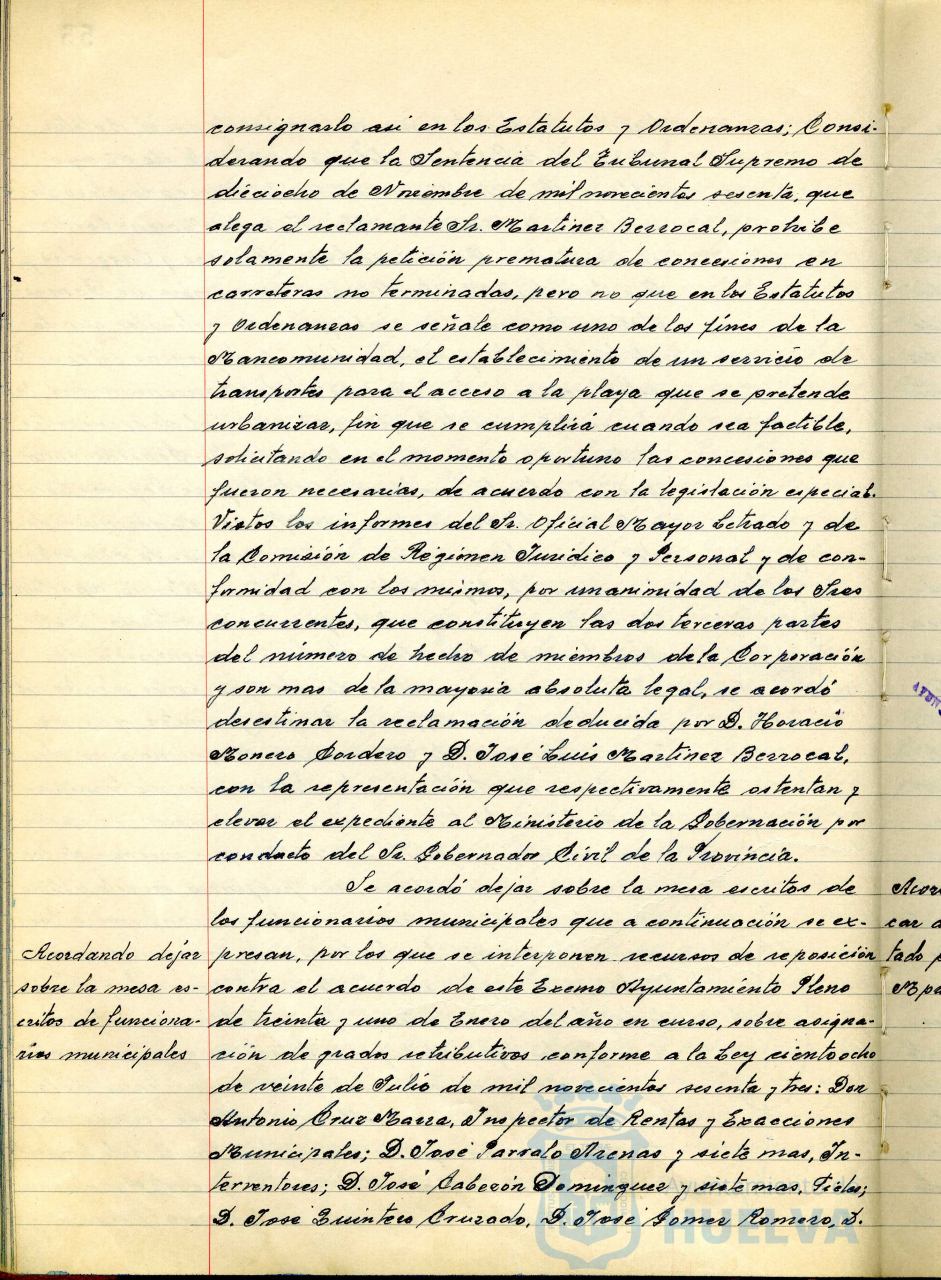 consignarlo asi en los Estatutos y Ordenanzas; Consi-
derando que la Sentencia del Tribunal Supremo de
dieciocho de Noviembre de mil novecientos sesenta, que
alega el reclamante Sr. Martinez Berrocal, prohibe
solamente la petición prematura de concesiones en
carreteras no terminadas, pero no que en los Estatutos
y Ordenanzas se señale como uno de los fines de la
Mancomunidad, el establecimiento de un servicio de
transportes para el acceso a la playa que se pretende
urbanizar, fin que se cumplirá cuando sea factible,
solicitando en el momento oportuno las concesiones que
fueron necesarias, de acuerdo con la legislación especial.
Vistos los informes del Sr. Oficial Mayor Letrado y de
la Comisión de Régimen Juridico y Personal y de con-
formidad con los mismos, por unanimidad de los Sres
concurrentes, que constituyen las dos terceras partes
del número de hecho de miembros de la Corporación
y son mas de la mayoria absoluta legal, se acordó
desestimar la reclamación deducida por D. Horacio
Monero Cordero y D. José Luis Martinez Berrocal,
con la representación que respectivamente ostentan y
elevar el expediente al Ministerio de la Gobernación por
conducto del Sr. Gobernador Civil de la Provincia.
Se acordó dejar sobre la mesa escritos de
los funcionarios municipales que a continuación se ex-
presan, por los que se interponen recursos de reposición
contra el acuerdo de este Excmo Ayuntamiento Pleno
de treinta y uno de Enero del año en curso, sobre asigna-
ción de grados retributivos conforme a la Ley ciento ocho
de veinte de Julio de mil novecientos sesenta y tres: Don
Antonio Cruz Marra, Inspector de Rentas y Exacciones
Municipales; D. José Parralo Arenas y siete mas, In-
terventores; D. José Caberón Dominguez y siete mas, Fieles;
D. José Quintero Cruzado, D. José Gomez Romero, D.
Acordando dejar
sobre la mesa es-
critos de funciona-
rios municipales
Acor
car a
tado p
HUELVA